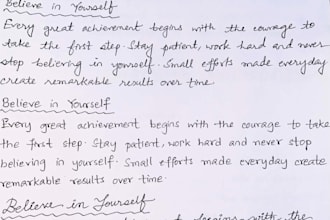 Believe in Yourself
Every great achievement begins with the courage to
take the first step. Stay patient, work hard and never
stop believing in yourself. Small efforts made everyday
create remarkable results over time.
Believe in Yourself
Every great achievement begins with the courage to take
the first step. Stay patient, work hard and never stop
believing in yourself. Small efforts made everyday create
remarkable results over time.
Believe in Yourself
begins with the